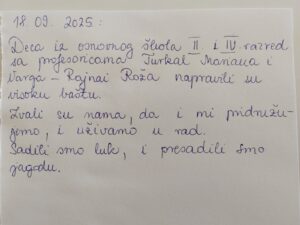 18. 09. 2025.:
Deca iz osnovnog škola II i IV razred
sa profesoricama Turkal Manana i
Varga - Rajnai Roža napravili su
visoku baštu.
Zvali su nama, da i mi pridružu-
jemo, i uživamo u rad.
Sadili smo luk, i presadili smo
jagodu.